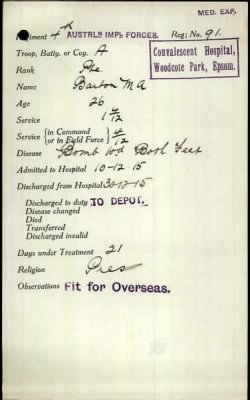 MED. EXP.
iment 4th AUSTRLN IMPL FORCES. Reg: No. 91.
Troop, Batty. or Coy. A
Convalescent Hospital,
Woodcote Park, Epsom.
Rank Pte
Name Barton M A
Age 26
Service 1 4/12
Service { in Command or in Field Force } 4/12
Disease Bomb wd Both Feet
Admitted to Hospital 10-12-15
Discharged from Hospital 30-12-15
Discharged to duty TO DEPOT.
Disease changed
Died
Transferred
Discharged invalid
Days under Treatment 21
Religion Pres
Observations Fit for Overseas.